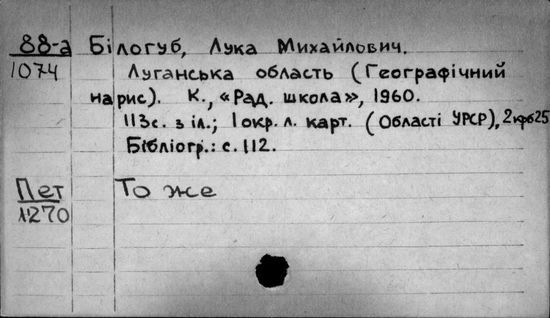 88-а Білогуб, Лука Михайлович.
1074 Луганська область (Географічний
нарис). К., «Рад. школа», 1960.
113с. з іл.; 1 окр. л. карт. (Області УРСР), 2 крб 25
Бібліогр.: с. 112.
Пет То же
1270